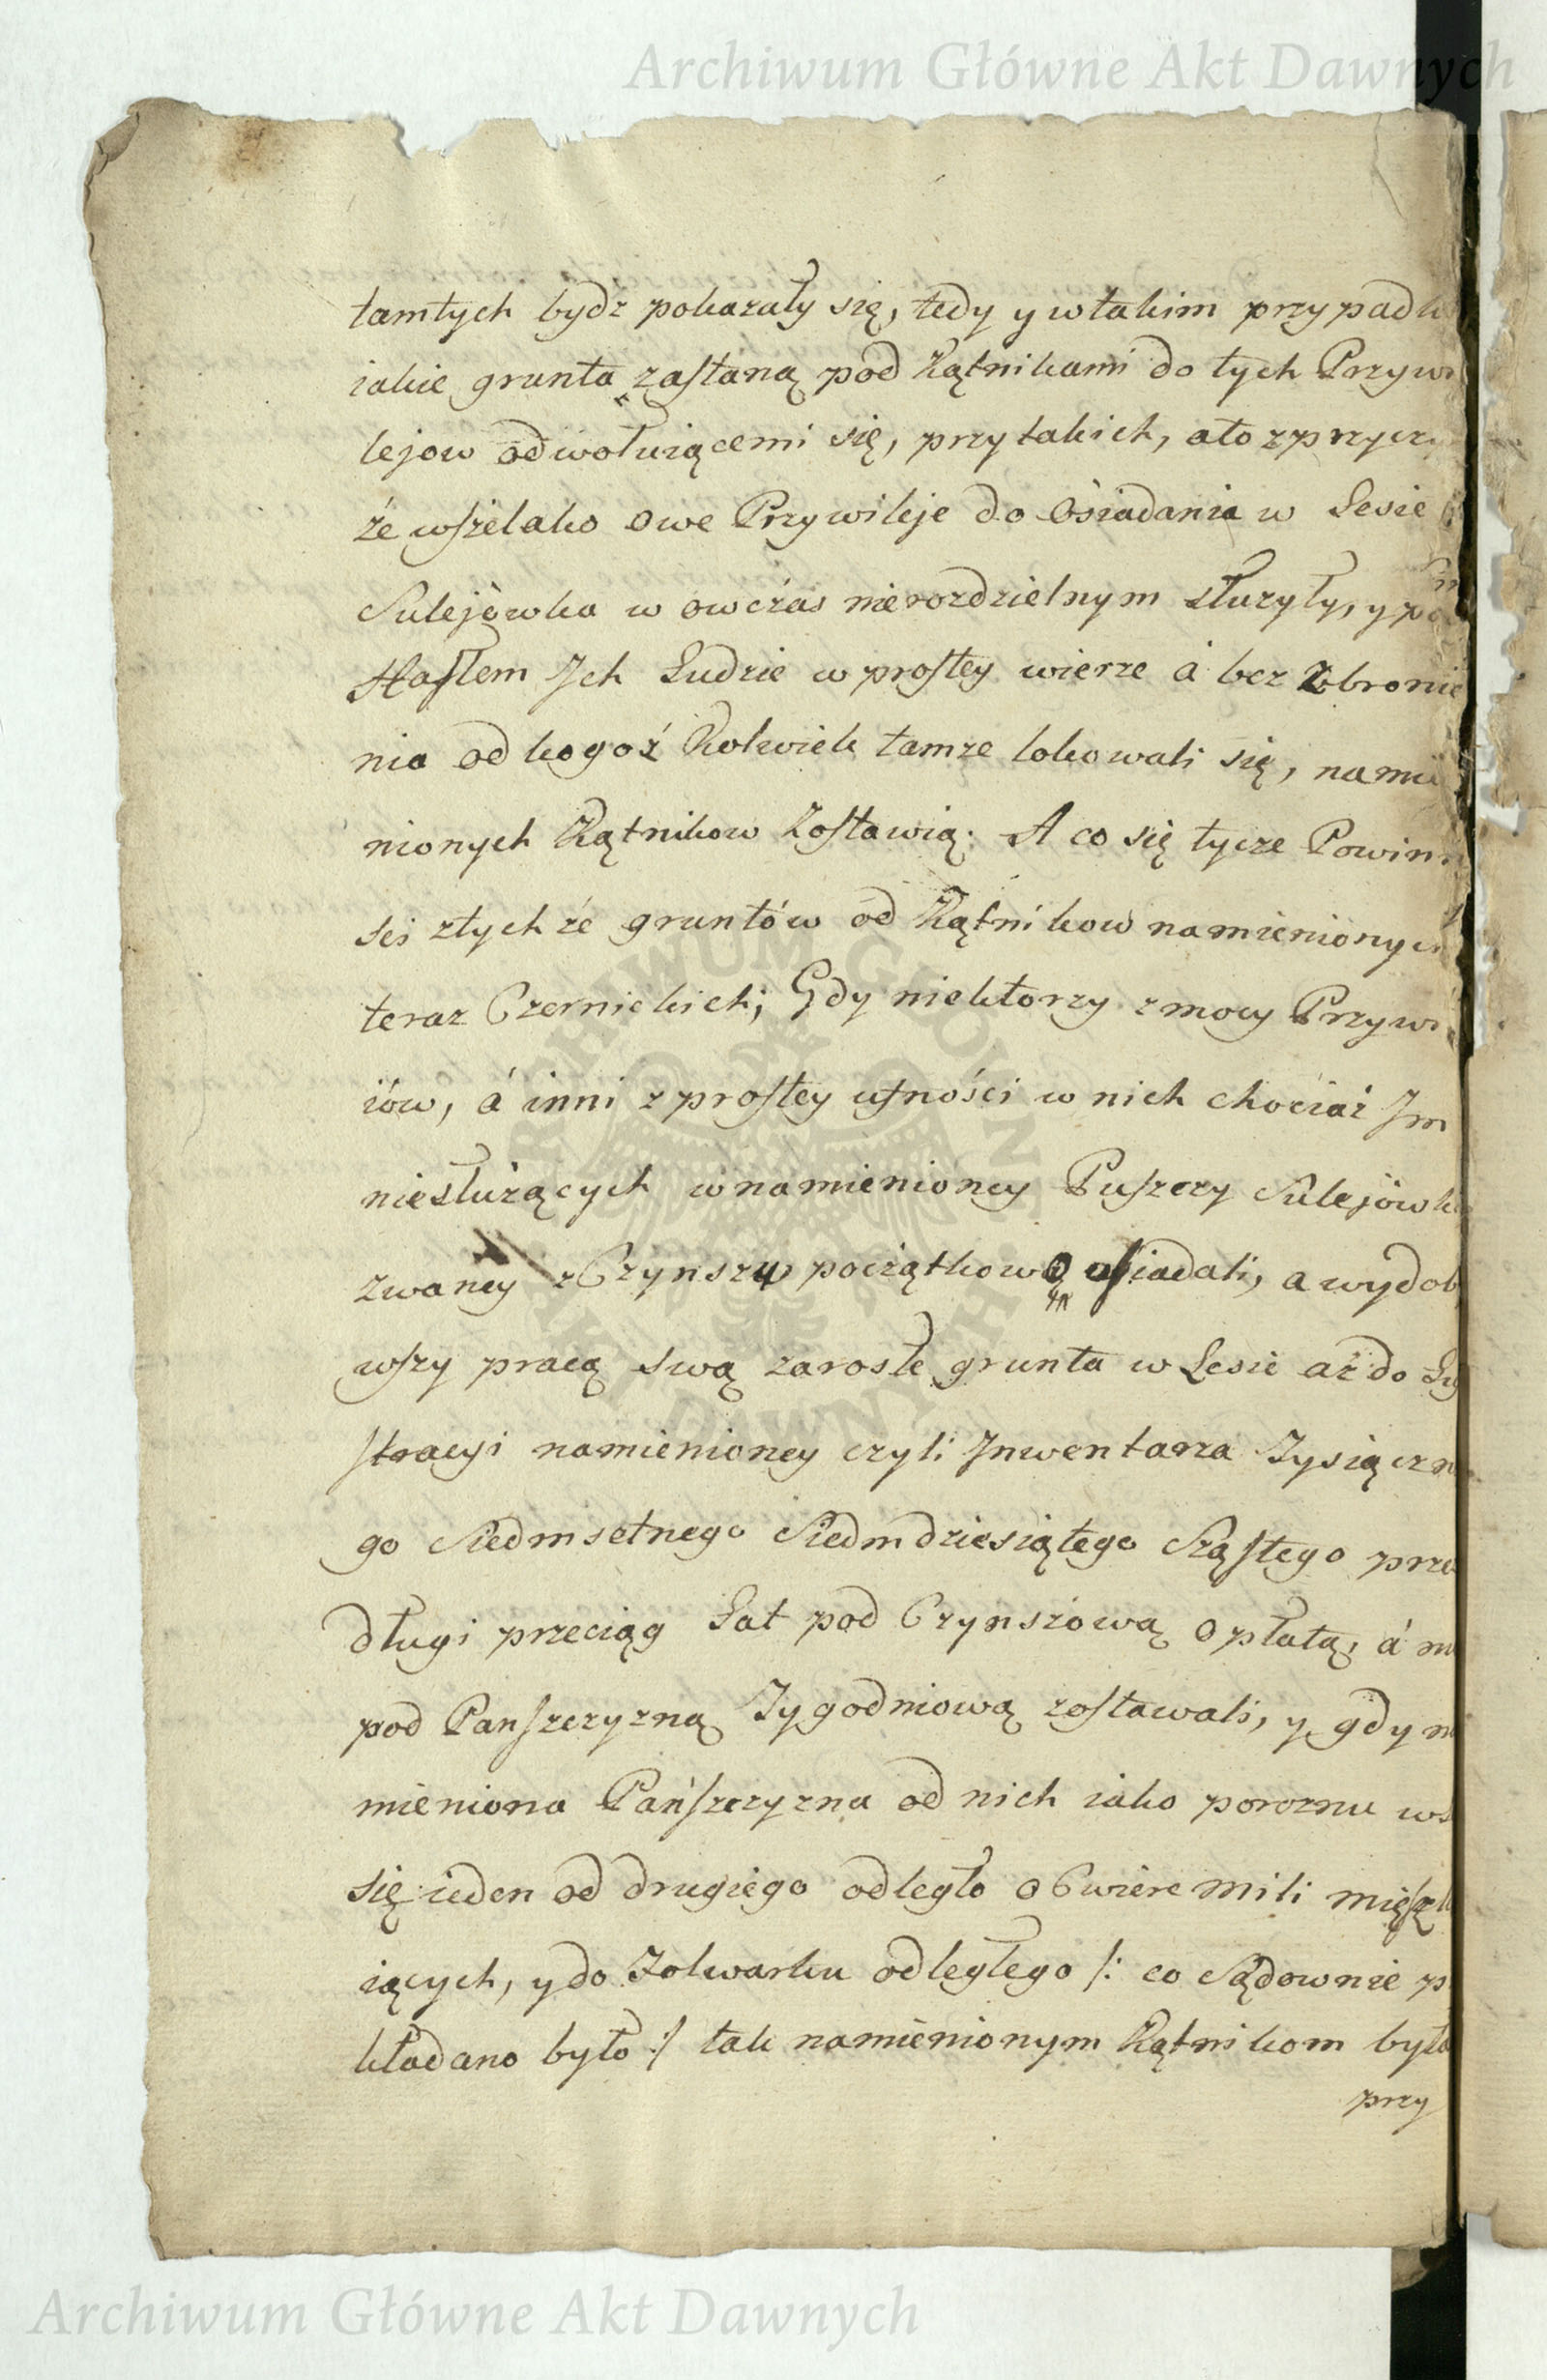 Archiwum Główne Akt Dawnych
tamtych bydz pokazały się, tedy y w takim przypadk
iakie grunta zastaną pod Kątnikami do tych Przywi
lejow odwołuiącemi się, przy takich, a to z przyczy
że wszelako owe Przywileje do Osiadania w Lesie
Sulejówka w owczas nierozdzielnym służyły, y pod
Hasłem Jch Ludzie w prostey wierze á bez Zbronie
nia od kogoż Kolwiek tamże lokowali się, namie
nionych Kątnikow Zostawią. A co się tycze Powinn
sci z tych że gruntów od Kątnikow namienionych
teraz Czernickich; Gdy niektorzy z mocy Przywi
iów, á inni z prostey ufności w nich chociaż Jm
niesłużących w namienioney Puszczy Sulejówk
zwaney z Czynszu początkowo osiadali, a wydob
wszy pracą swą zarosłe grunta w Lesie aż do Lu
stracyi namienioney czyli Jnwentarza Tysiączn
go Siedmsetnego Siedmdziesiątego Szóstego prze
długi przeciąg Lat pod Czynszową Opłatą, á n
pod Panszczyzną Tygodniową zostawali, y gdy n
mieniona Pańszczyzna od nich iako porożnu ws
się ieden od drugiego odległo o Cwierc mili mięszk
iących, y do Folwarku odległego /: co Sądownie p
kładano było :/ tak namienionym Kątnikom była
przy
ARCHIWUM GŁÓWNE AKT DAWNYCH
Archiwum Główne Akt Dawnych